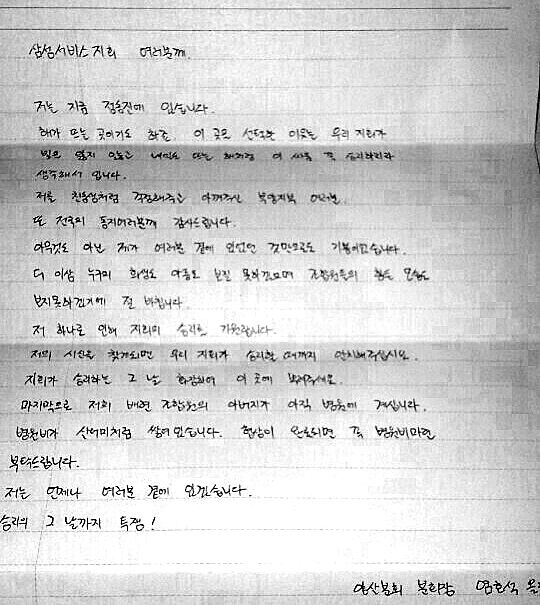 삼성서비스지회 여러분께.
저는 지금 정동진에 있습니다.
해가 뜨는 곳이기도 하죠. 이 곳을 선택한 이유는 우리 지회가
빛을 잃지 않고 내일도 뜨는 해처럼 이 싸움 꼭 승리하리라
생각해서 입니다.
저를 친동생처럼 걱정해주고 아껴주신 부양지부 여러분,
또 전국의 동지여러분께 감사드립니다.
아무것도 아닌 제가 여러분 곁에 있었던 것만으로도 기쁨이었습니다.
더 이상 누구의 희생도 아픔도 보질 못하겠으며 조합원들의 힘든 모습도
보지못하겠기에 절 바칩니다.
저 하나로 인해 지회의 승리를 기원합니다.
저의 시신을 찾게되면 우리 지회가 승리할 때까지 안치해주십시오.
지회가 승리하는 그 날 화장하여 이 곳에 뿌려주세요.
마지막으로 저희 조합원의 아버지가 아직 병원에 계십니다.
병원비가 산더미처럼 쌓여있습니다. 협상이 완료되면 꼭 병원비마련
부탁드립니다.
저는 언제나 여러분 곁에 있겠습니다.
승리의 그 날까지 투쟁!
양산분회 분회장 염호석 올림